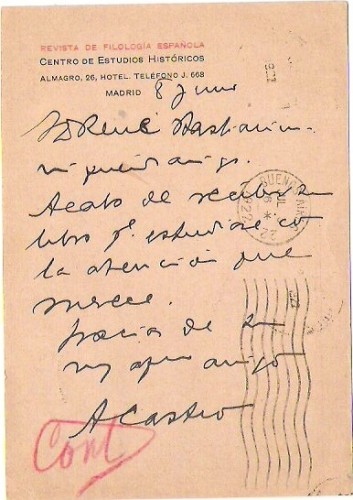 REVISTA DE FILOLOGÍA ESPAÑOLA
CENTRO DE ESTUDIOS HISTÓRICOS
ALMAGRO, 26, HOTEL. TELEFONO J. 668
MADRID 8 Junio
René Bastianini
mi querido amigo.
Acabo de recibir su
libro qe. estudiaré con
la atención que
merece.
Gracias de su
amigo
A Castro
Cont
BUENOS AIRES
JUL
1922